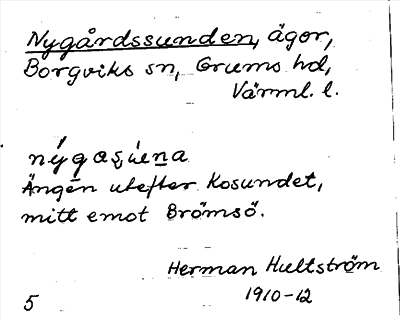 Nygårdssunden, ägor,
Borgviks sn, Grums hd,
Värml. l.
Ängen utefter Kosundet,
mitt emot Brömsö.
Herman Hultström
1910-12
5